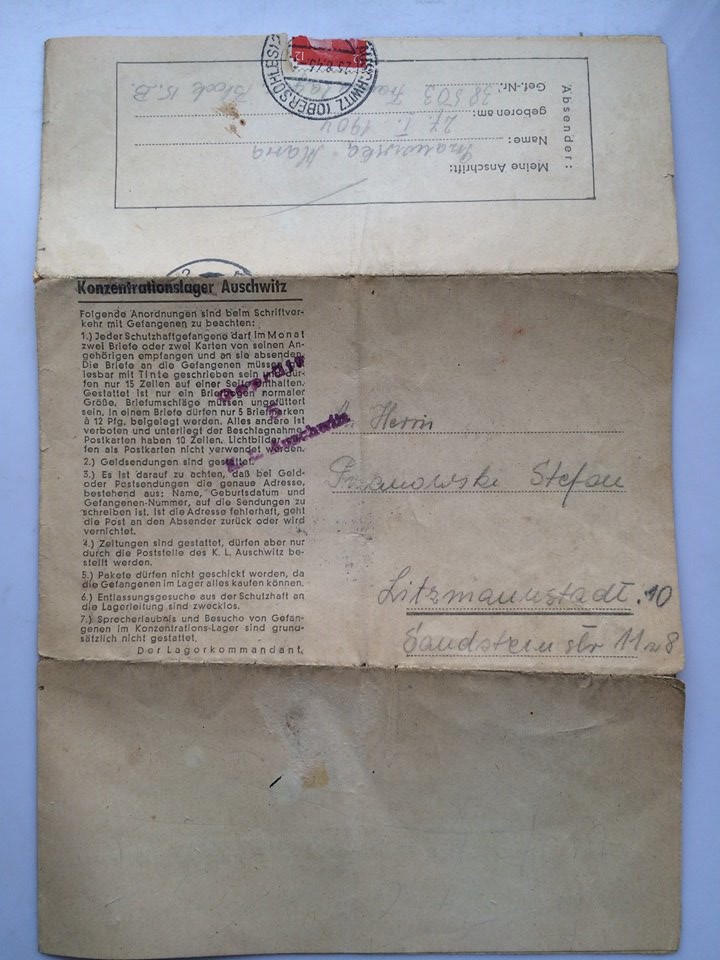 AUSCHWITZ (OBERSCHLES)
12
Absender:
Meine Anschrift:
Name: Maria
geboren am: 27. I. 1904
Gef.-Nr. 38503 Block 15.B
Konzentrationslager Auschwitz
Folgende Anordnungen sind beim Schriftver-
kehr mit Gefangenen zu beachten:
1.) Jeder Schutzhaftgefangene darf im Monat
zwei Briefe oder zwei Karten von seinen An-
gehörigen empfangen und an sie absenden.
Die Briefe an die Gefangenen müssen
lesbar mit Tinte geschrieben sein und dür-
fen nur 15 Zeilen auf einer Seite enthalten.
Gestattet ist nur ein Briefbogen normaler
Größe. Briefumschläge müssen ungefüttert
sein. In einem Briefe dürfen nur 5 Briefmarken
à 12 Pfg. beigelegt werden. Alles andere ist
verboten und unterliegt der Beschlagnahme.
Postkarten haben 10 Zeilen. Lichtbilder
fen als Postkarten nicht verwendet werden.
2.) Geldsendungen sind gestattet.
3.) Es ist darauf zu achten, daß bei Geld-
oder Postsendungen die genaue Adresse,
bestehend aus: Name, Geburtsdatum und
Gefangenen-Nummer, auf die Sendungen zu
schreiben ist. Ist die Adresse fehlerhaft, geht
die Post an den Absender zurück oder wird
vernichtet.
4.) Zeitungen sind gestattet, dürfen aber nur
durch die Poststelle des K. L. Auschwitz be-
stellt werden.
5.) Pakete dürfen nicht geschickt werden, da
die Gefangenen im Lager alles kaufen können.
6.) Entlassungsgesuche aus der Schutzhaft an
die Lagerleitung sind zwecklos.
7.) Sprecherlaubnis und Besuche von Gefan-
genen im Konzentrations-Lager sind grund-
sätzlich nicht gestattet.
Der Lagerkommandant.
Geprüft
5
K. L. Auschwitz
Herrn
Przanowski Stefan
Litzmannstadt. 10
Sandstein str 11 z 8